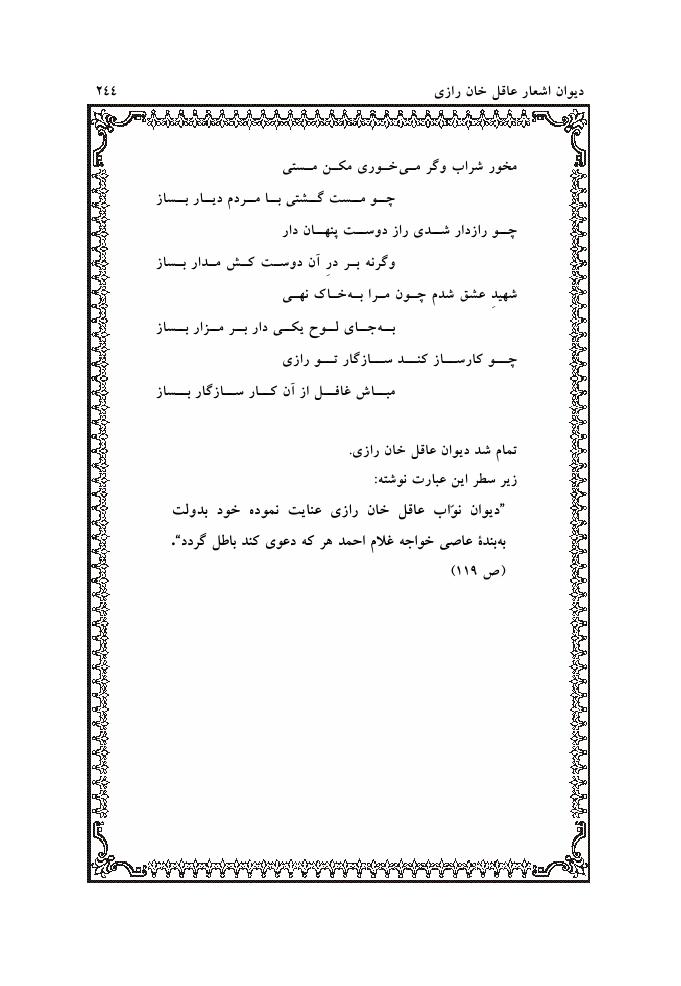 دیوان اشعار عاقل خان رازی ۲٤٤
مخور شراب وگر می‌خوری مکن مستی
چو مست گشتی با مردم دیار بساز
چو رازدار شدی راز دوست پنهان دار
وگرنه بر درِ آن دوست کش مدار بساز
شهیدِ عشق شدم چون مرا به‌خاک نهی
به‌جای لوح یکی دار بر مزار بساز
چو کارساز کند سازگار تو رازی
مباش غافل از آن کار سازگار بساز
تمام شد دیوان عاقل خان رازی.
زیر سطر این عبارت نوشته:
”دیوان نوّاب عاقل خان رازی عنایت نموده خود بدولت
به‌بندهٔ عاصی خواجه غلام احمد هر که دعوی کند باطل گردد“.
(ص ۱۱۹)